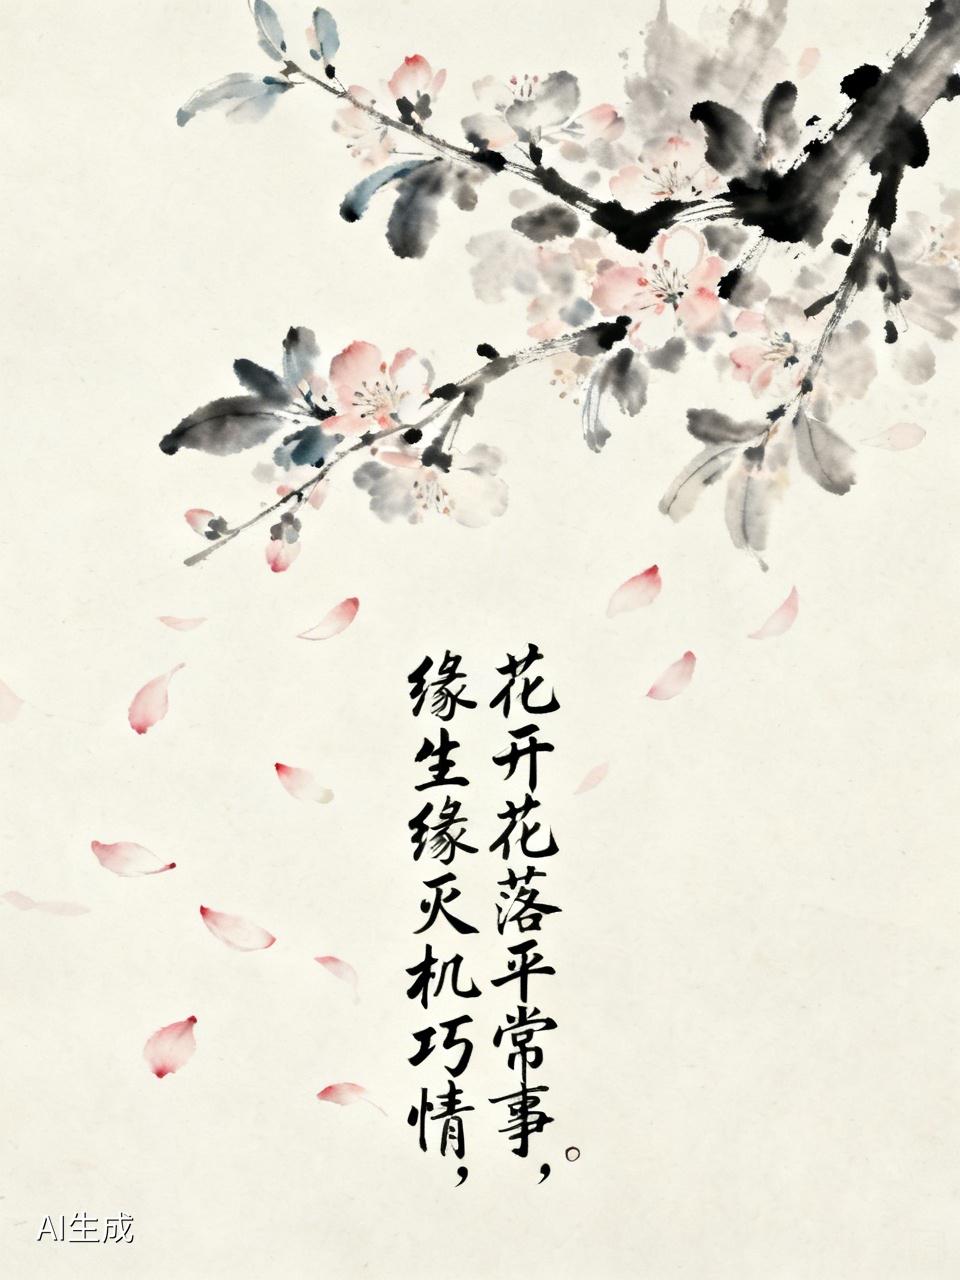 花开花落平常事，。
缘生缘灭机巧情，
AI生成